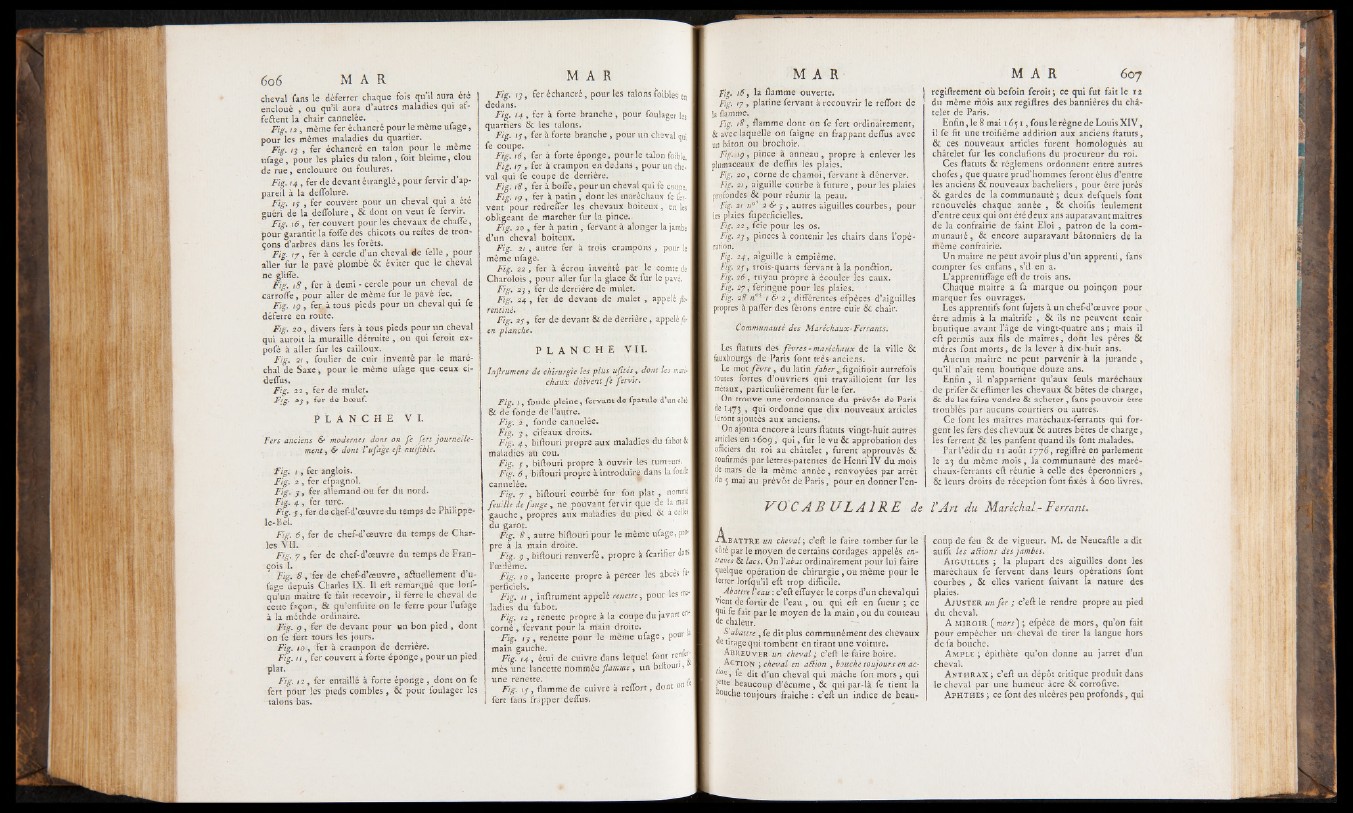 606 M A R
cheval ſans le déferrer chaque fois qu'il aura été
encloué , ou qu'il aura d'autres maladies qui af-
fectent la chair cannelée.
Fig. 12 , même fer échancré pour le même uſage ,
pour les mêmes maladies du quartier.
Fig. 13 , fer échancré en talon pour le même
uſage , pour les plaies du talon , ſoit bleime , clou
de rue , enclouure ou foulures.
Fig. 14 , fer de devant étranglé, pour ſervir d'ap-
pareil à la deſſolure.
Fig. 15 , fer couvert pour un cheval qui a été
guéri de la deſſolure , & dont on veut ſe ſervir.
Fig. 16 , fer couvert pour les chevaux de chaſſe,
pour garantir la foſſe des chicots ou reſtes de tron-
çons d'arbres dans les forêts.
Fig. 17 , fer à cercle d'un cheval de ſelle , pour
aller ſur le pavé plombé & éviter que le cheval
ne gliſſe.
Fig. 18 , fer à demi - cercle pour un cheval de
carroſſe , pour aller de même ſur le pavé ſec.
Fig. 19 , fer à tous pieds pour un cheval qui ſe
déferre en route.
Fig. 20 , divers fers à tous pieds pour un cheval
qui auroit la muraille détruite , ou qui ſeroit ex-
poſé à aller ſur les cailloux.
Fig. 21 , ſoulier de cuir inventé par le maré-
chal de Saxe , pour le même uſage que ceux ci-
deſſus.
Fig. 22 , fer de mulet.
Fig. 23 , fer de bœuf.
P L A N C H E V I.
Fers anciens & modernes dont on ſe ſert journelle-
ment , & dont l'uſage eſt nuiſible.
Fig. 1 , fer anglois.
Fig. 2 , fer eſpagnol.
Fig. 3 , fer allemand ou fer du nord.
Fig. 4 , fer turc.
Fig. 5 , fer de chef-d'œuvre du temps de Philippe-
le-Bel.
Fig. 6 , fer de chef-d'œuvre du temps de Char-
les VII.
Fig. 7 , fer de chef-d'œuvre du temps de Fran-
çois I.
Fig. 8 , fer de chef-d'œuvre, actuellement d'u-
ſage depuis Charles IX. Il eſt remarqué que lorſ-
qu'un maître ſe fait recevoir , il ferre le cheval de
cette façon , & qu'enſuite on le ferre pour l'uſage
à la méthde ordinaire.
Fig. 9 , fer de devant pour un bon pied , dont
on ſe ſert tours les jours.
Fig. 10 , fer à crampon de derrière.
Fig. 11 , fer couvert à forte éponge , pour un pied
plat.
Fig. 12 , fer entaillé à forte éponge , dont on ſe
ſert pour les pieds combles , & pour ſoulager les
talons bas.
M A R
Fig. 13 , fer échancré , pour les talons foibles en
dedans.
Fig. 14 , fer à forte branche , pour ſoulager les
quartiers & les talons.
Fig. 15 , fer à forte branche , pour un cheval qui
ſe coupe.
Fig. 16 , fer à forte éponge , pour le talon foible.
Fig. 17 , fer à crampon en dedans , pour un che-
val qui ſe coupe de derrière.
Fig. 18 , fer à boſſe , pour un cheval qui ſe coupe.
Fig. 19 , fer à patin , dont les maréchaux ſe ſer-
vent pour redreſſer les chevaux boiteux , en les
obligeant de marcher ſur la pince.
Fig. 20 , fer à patin , ſervant à alonger la jambe
d'un cheval boiteux.
Fig. 21 , autre fer à trois crampons , pour le
même uſage.
Fig. 22 , fer à écrou inventé par le comte de
Charolois , pour aller ſur la glace & ſur le pavé.
Fig. 23 , fer de derrière de mulet.
Fig. 24 , fer de devant de mulet , appelé flo-
rentine.
Fig. 25 , fer de devant & de derrière , appelé fer
en planche.
P L A N C H E VII.
Inſtrumens de chirurgie les plus uſités , dont les maré-
chaux doivent ſe ſervir.
Fig. 1 , ſonde pleine , ſervant de ſpatule d'un côté
& de ſonde de l'autre.
Fig. 2 , ſonde cannelée.
Fig. 3 , ciſeaux droits.
Fig. 4 , biſtouri propre aux maladies du ſabot &
maladies au cou.
Fig. 5 , biſtouri propre à ouvrir les tumeurs.
Fig. 6 , biſtouri propre à introduire dans la ſonde
cannelée.
Fig. 7 , biſtouri courbé ſur ſon plat , nommé
feuille de ſauge , ne pouvant ſervir que de la main
gauche , propres aux maladies du pied & à celles
du garot.
Fig. 8 , autre biſtouri pour le même uſage, pro-
pre à la main droite.
Fig. 9 , biſtouri renverſé , propre à ſcarifier dans
l'œdème.
Fig. 10 , lancette propre à percer les abcès ſu-
perficiels.
Fig. 11 , inſtrument appelé renette , pour les ma-
ladies du ſabot.
Fig. 12 , renette propre à la coupe du javart en-
corné , ſervant pour la main droite.
Fig. 13 , renette pour le même uſage , pour la
main gauche.
Fig. 14 , étui de cuivre dans lequel ſont renfer-
més une lancette nommée flamme , un biſtouri , &
une renette.
Fig. 15 , flamme de cuivre à reſſort , dont on ſe
ſert ſans frapper deſſus.
M A R
Fig. 16 , la flamme ouverte.
Fig. 17 , platine ſervant à recouvrir le reſſort de
la flamme.
Fig. 18 , flamme dont on ſe ſert ordinairement,
& avec laquelle on ſaigne en frappant deſſus avec
un bâton ou brochoir.
Fig. 19 , pince à anneau , propre à enlever les
plumaceaux de deſſus les plaies.
Fig. 20 , corne de chamoi, ſervant à dénerver.
Fig. 21 , aiguille courbe à ſuture , pour les plaies
profondes & pour réunir la peau.
Fig. 21 nos 2 & 3 , autres aiguilles courbes , pour
les plaies ſuperficielles.
Fig. 22 , ſcie pour les os.
Fig. 23 , pinces à contenir les chairs dans l'opé-
ration.
Fig. 24 , aiguille à empième.
Fig. 25 , trois-quarts ſervant à la ponction.
Fig. 26 , tuyau propre à écouler les eaux.
Fig. 27 , ſeringue pour les plaies.
Fig. 28 nos 1 & 2 , différentes eſpèces d'aiguilles
propres à paſſer des ſétons entre cuir & chair.
Communauté des Maréchaux-Ferrants.
Les ſtatuts des fèvres-maréchaux de la ville &
fauxbourgs de Paris ſont très anciens.
Le mot fèvre , du latin faber , ſignifioit autrefois
toutes ſortes d'ouvriers qui travailloient ſur les
métaux, particulièrement ſur le fer.
On trouve une ordonnance du prévôt de Paris
de 1473 , qui ordonne que dix nouveaux articles
ſeront ajoutés aux anciens.
On ajouta encore à leurs ſtatuts vingt-huit autres
articles en 1609 , qui , ſur le vu & approbation des
officiers du roi au châtelet , furent approuvés &
confirmés par lettres-patentes de Henri IV du mois
de mars de la même année , renvoyées par arrêt
du 5 mai au prévôt de Paris , pour en donner l'en-
M A R 607
regiſtrement où beſoin ſeroit ; ce qui fut fait le 12
du même mois aux regiſtres des bannières du châ-
telet de Paris.
Enfin , le 8 mai 1651 , ſous le règne de Louis XIV ,
il ſe fit une troiſième addition aux anciens ſtatuts ,
& ces nouveaux articles furent homologués au
châtelet ſur les concluſions du procureur du roi.
Ces ſtatuts & règlemens ordonnent entre autres
choſes , que quatre prud'hommes ſeront élus d'entre
les anciens & nouveaux bacheliers , pour être jurés
& gardes de la communauté ; deux deſquels ſont
renouvelés chaque année , & choiſis ſeulement
d'entre ceux qui ont été deux ans auparavant maîtres
de la confrairie de ſaint Eloi , patron de la com-
munauté , & encore auparavant bâtonniers de la
même confrairie.
Un maître ne peut avoir plus d'un apprenti , ſans
compter ſes enfans , s'il en a.
L'apprentiſſage eſt de trois ans.
Chaque maître a ſa marque ou poinçon pour
marquer ſes ouvrages.
Les apprentifs ſont ſujets à un chef-d'œuvre pour
être admis à la maîtriſe , & ils ne peuvent tenir
boutique avant l'âge de vingt-quatre ans ; mais il
eſt permis aux fils de maîtres , dont les pères &
mères ſont morts , de la lever à dix-huit ans.
Aucun maître ne peut parvenir à la jurande ,
qu'il n'ait tenu boutique douze ans.
Enfin , il n'appartient qu'aux ſeuls maréchaux
de priſer & eſtimer les chevaux & bêtes de charge ,
& de les faire vendre & acheter , ſans pouvoir être
troublés par aucuns courtiers ou autres.
Ce ſont les maîtres maréchaux-ferrants qui for-
gent les fers des chevaux & autres bêtes de charge ,
les ferrent & les panſent quand ils ſont malades.
Par l'édit du 11 août 1776 , regiſtré en parlement
le 23 du même mois , la communauté des maré-
chaux-ferrants eſt réunie à celle des éperonniers ,
& leurs droits de réception ſont fixés à 600 livres.
VOCABULAIRE de l'Art du Maréchal-Ferrant.
ABATTRE un cheval ; c'eſt le faire tomber ſur le
côté par le moyen de certains cordages appelés en-
traves & lacs. On l'abat ordinairement pour lui faire
quelque opération de chirurgie , ou même pour le
ferrer lorſqu'il eſt trop difficile.
Abattre l'eau : c'eſt eſſuyer le corps d'un cheval qui
vient de ſortir de l'eau , ou qui eſt en ſueur ; ce
qui ſe fait par le moyen de la main , ou du couteau
de chaleur.
S'abattre , ſe dit plus communément des chevaux
de tirage qui tombent en tirant une voiture.
ABREUVER un cheval ; c'eſt le faire boire.
ACTION ; cheval en action , bouche toujours en ac-
tion , ſe dit d'un cheval qui mâche ſon mors , qui
jette beaucoup d'écume , & qui par-là ſe tient la
bouche toujours fraîche : c'eſt un indice de beau-
coup de feu & de vigueur. M. de Neucaſtle a dit
auſſi les actions des jambes.
AIGUILLES ; la plupart des aiguilles dont les
maréchaux ſe ſervent dans leurs opérations ſont
courbes , & elles varient ſuivant la nature des
plaies.
AJUSTER un fer ; c'eſt le rendre propre au pied
du cheval.
A MIROIR ( mors ) ; eſpèce de mors, qu'on fait
pour empêcher un cheval de tirer la langue hors
de ſa bouche.
AMPLE ; épithète qu'on donne au jarret d'un
cheval.
ANTHRAX ; c'eſt un dépôt critique produit dans
le cheval par une humeur âcre & corroſive.
APHTHES ; ce ſont des ulcères peu profonds , qui